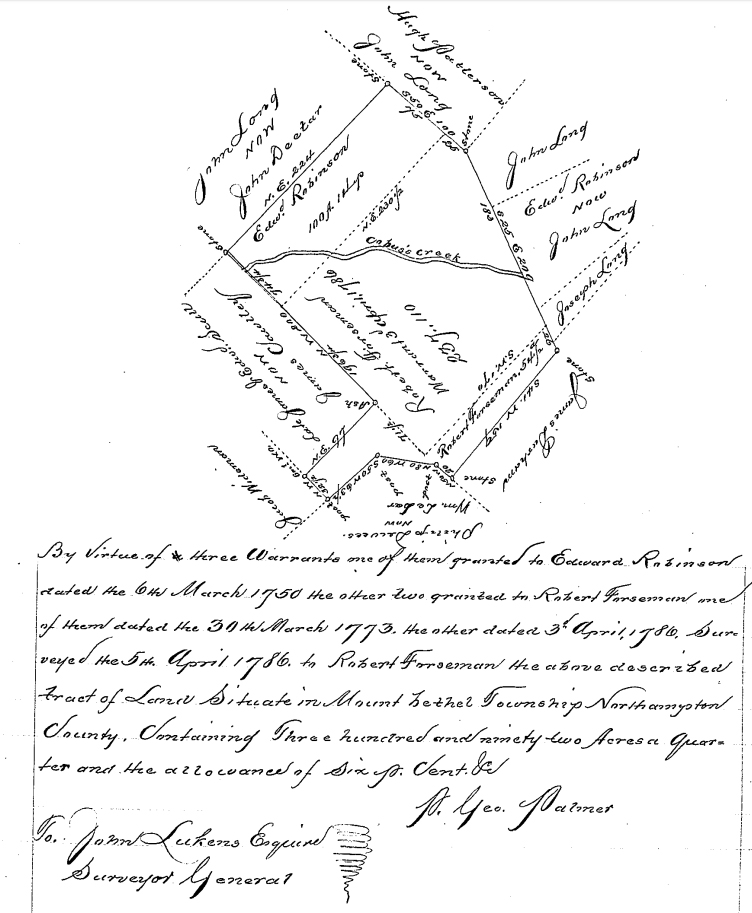 Hugh Patterson
NOW
John Long
Stone
Stone
John Long
NOW
John Dectar
N. E. 224
Edwd. Robinson
100 A. 14 p
N. E. 230 1/2
John Long
Edwd. Robinson
NOW
John Long
S 25 E 209
183
Stone
Creek
Joseph Long
Robert Forseman
Warrant 3 April 1786
237. 110
James
NOW
Ash
Robert Forseman, 54
Stone
S 41. W 154
Stone
post
post
Wm. Labar
NOW
Jacob Wideman
By Virtue of three Warrants one of them granted to Edward Robinson
dated the 6th March 1750 the other two granted to Robert Forseman one
of them dated the 30th March 1773. the other dated 3d April, 1786, Sur=
veyed the 5th. April 1786. to Robert Forseman the above described
tract of Land Situate in Mount bethel Township Northampton
County. Containing Three hundred and ninety-two Acres a Quar=
ter and the allowance of Six P. Cent. &c
P. Geo. Palmer
To. John Lukens Esquire
Surveyor General